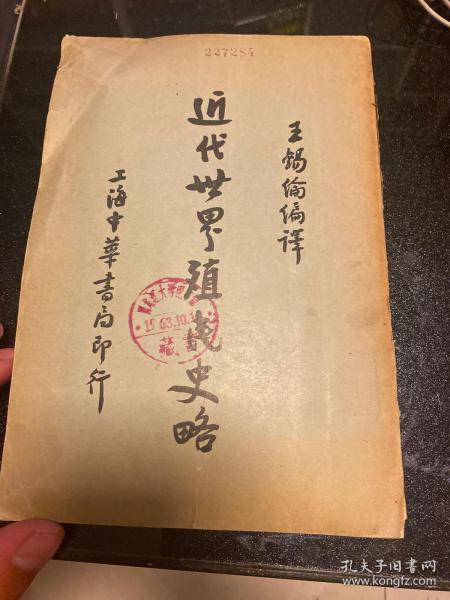 227284
王錫綸編譯
近代世界殖民史略
上海中華書局印行
大学图
1963.10.
藏書
孔夫子旧书网
www.kongfz.com